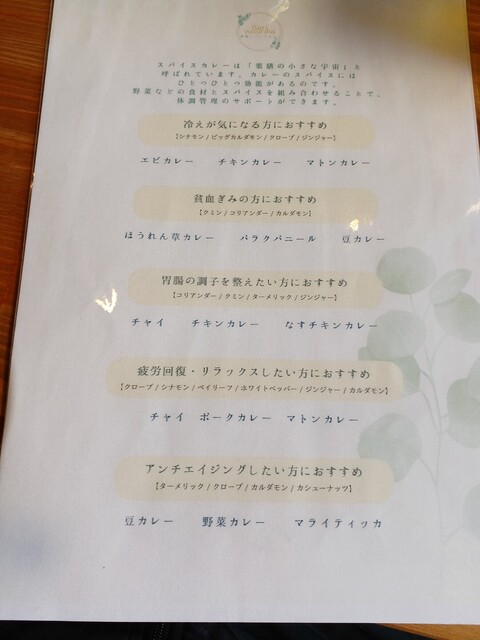 スパイスカレーは「薬膳の小さな宇宙」と
呼ばれています。カレーのスパイスには
ひとつひとつ効能があるのです。
野菜などの食材とスパイスを組み合わせることで、
体調管理のサポートができます。
冷えが気になる方におすすめ
【シナモン/ビッグカルダモン/クローブ/ジンジャー】
エビカレー チキンカレー マトンカレー
貧血ぎみの方におすすめ
【クミン/コリアンダー/カルダモン】
ほうれん草カレー パラクパニール 豆カレー
胃腸の調子を整えたい方におすすめ
【コリアンダー/クミン/ターメリック/ジンジャー】
チャイ チキンカレー なすチキンカレー
疲労回復・リラックスしたい方におすすめ
【クローブ/シナモン/ベイリーフ/ホワイトペッパー/ジンジャー/カルダモン】
チャイ ポークカレー マトンカレー
アンチエイジングしたい方におすすめ
【ターメリック/クローブ/カルダモン/カシューナッツ】
豆カレー 野菜カレー マライティッカ